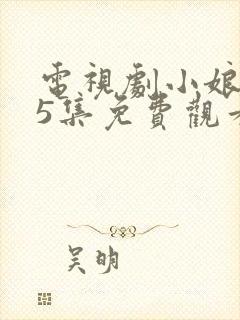 電視劇小娘
5集免費觀
吳明